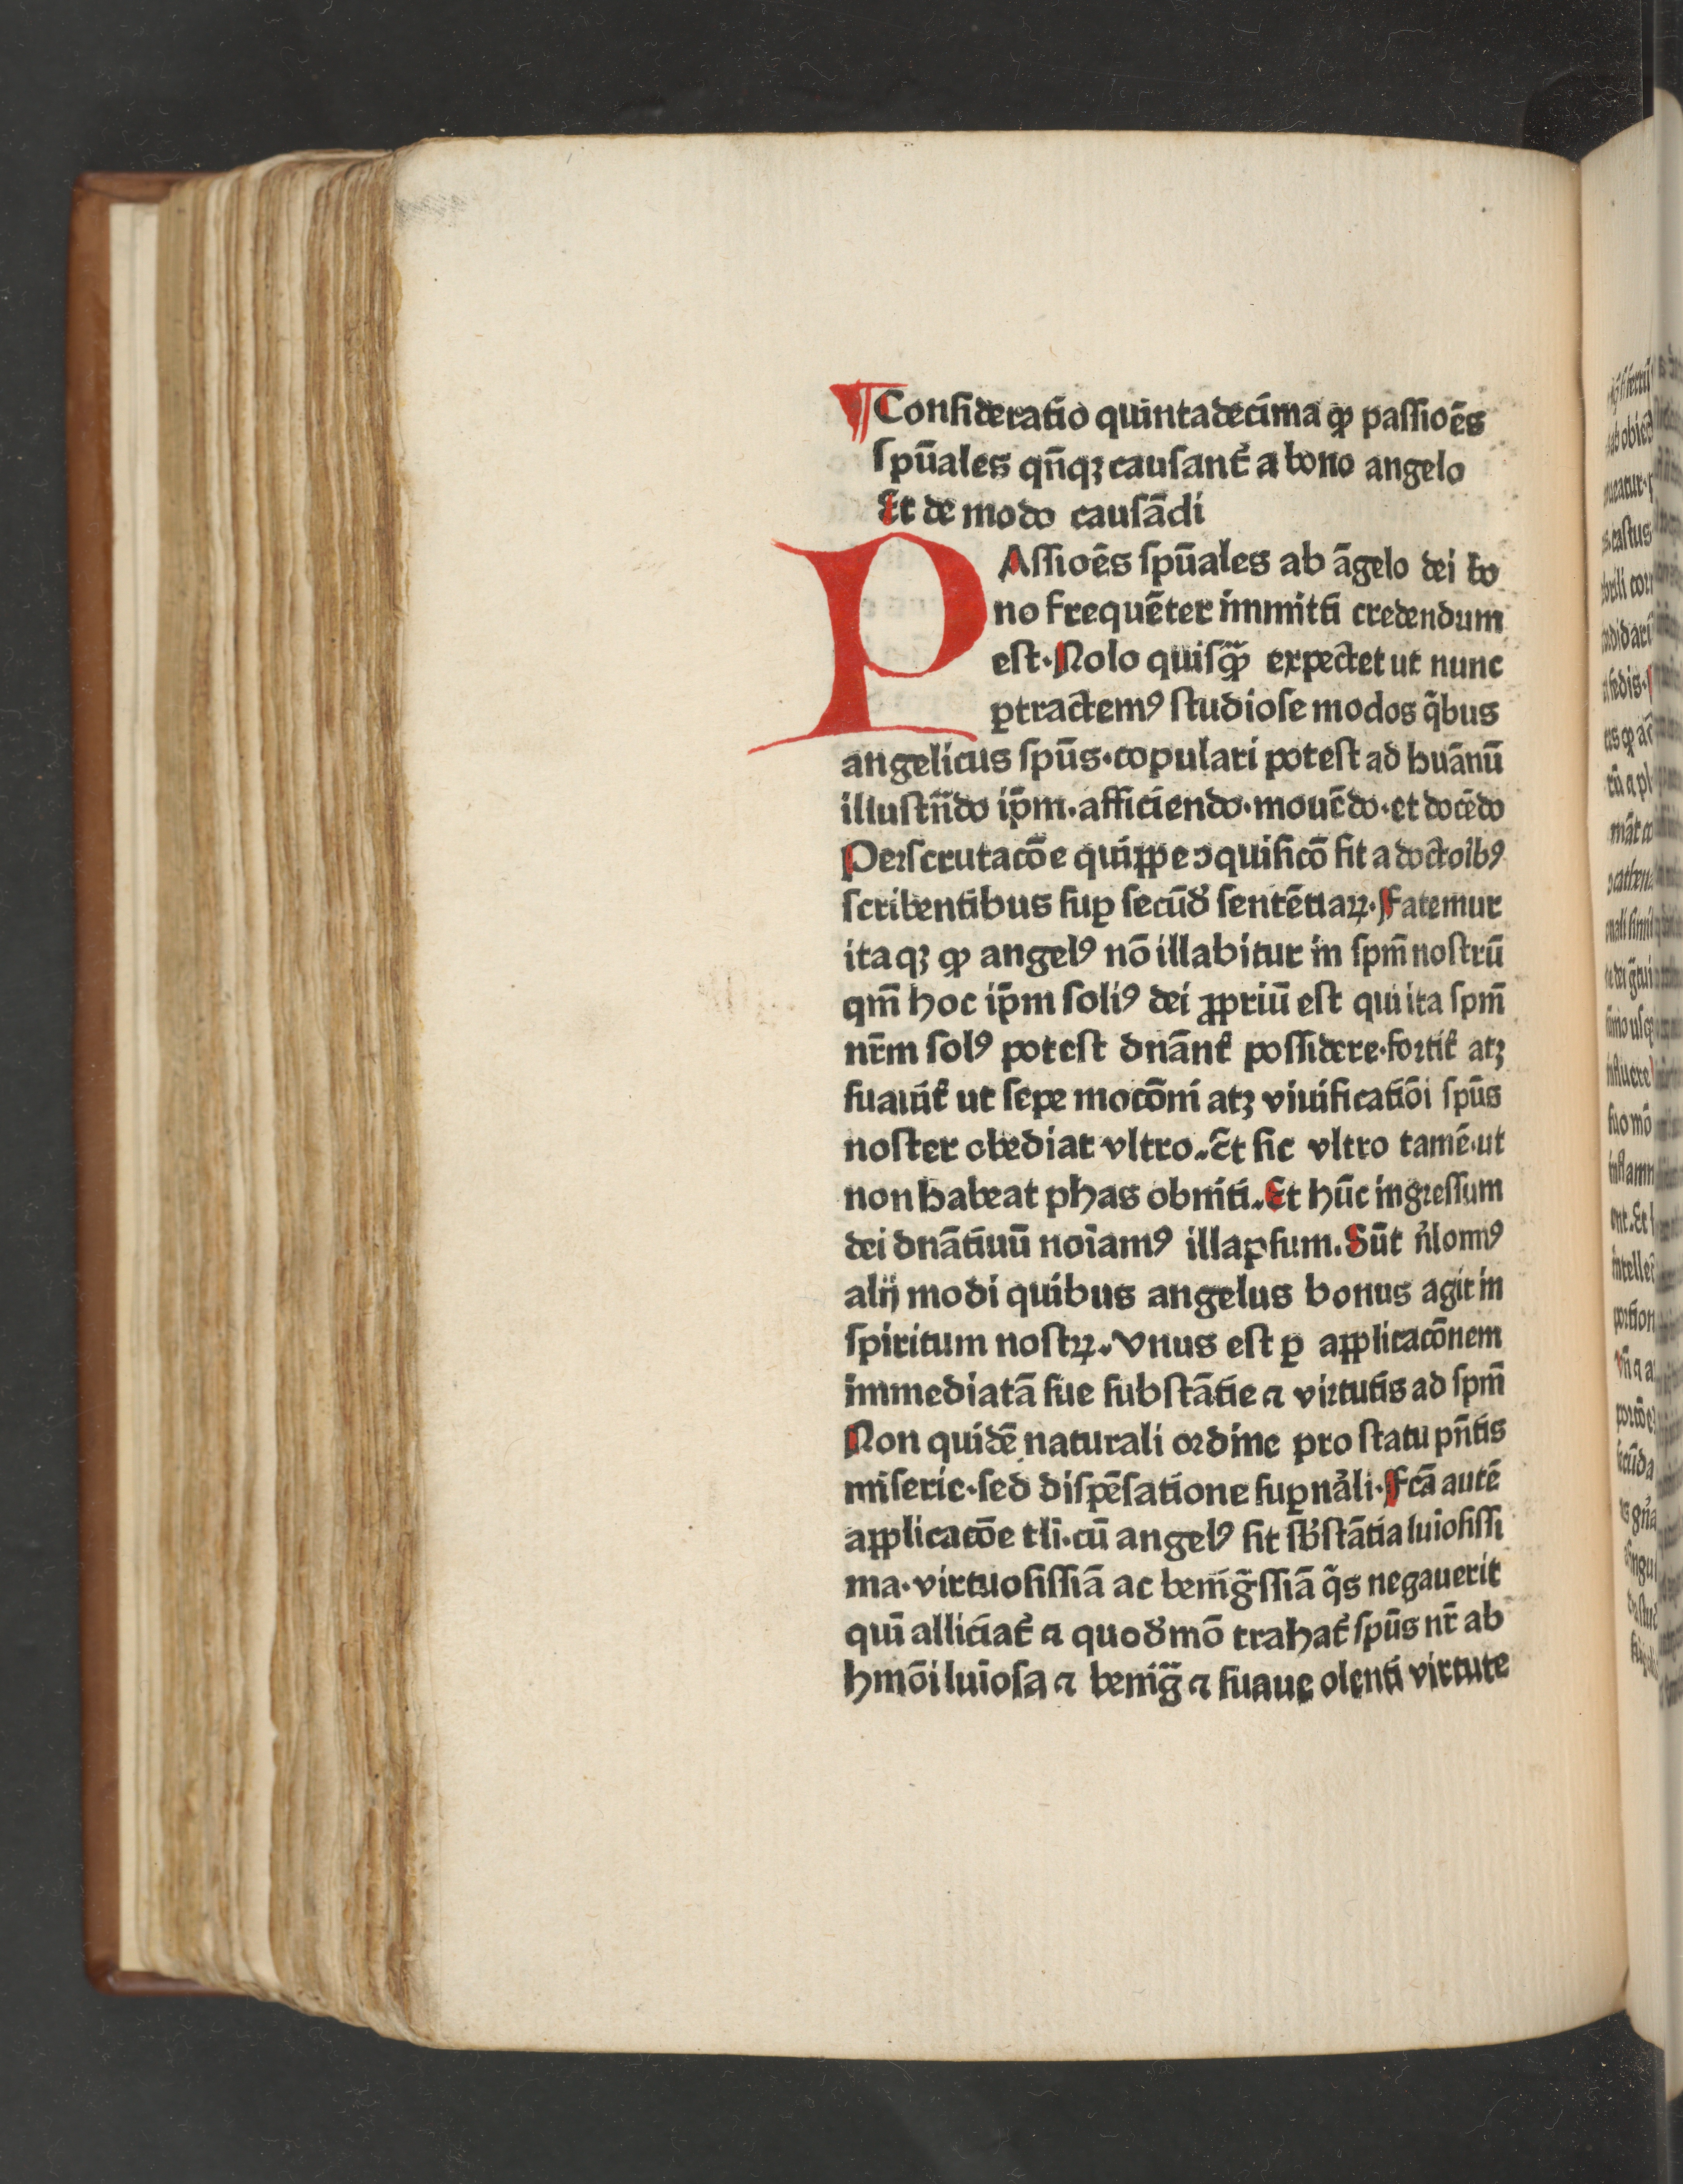 ¶Conſideratio quintadecima ꝙ paſſioēs
ſpūales qn̄qꝫ cauſant᷑ a bono angelo
Et de modo cauſādi
PAſſioēs ſpūales ab āgelo dei bo
no frequēter immitti credendum
eſt·Nolo quiſꝙ̄ expectet ut nunc
ꝑtractemꝰ ſtudioſe modos q̄bus
angelicus ſpūs·copulari poteſt ad huānū
illuſtrādo ip̄m·afficiendo·mouēdo·et docēdo
Perſcrutacōe quippe ↄquiſicō fit a doctoībꝰ
ſcribentibus ſuꝑ ſecūdꝰ ſentētiaꝝ·Fatemur
itaqꝫ ꝙ angelꝰ nō illabitur in ſpm̄ noſtrū
qm̄ hoc ip̄m ſoliꝰ dei ꝓpriū eſt qui ita ſpm̄
nr̄m ſolꝰ poteſt dnānt᷑ poſſidere·fortit᷑ atꝫ
ſuauit᷑ ut ſepe mocōni atꝫ viuificatiōi ſpūs
noſter obediat vltro..Et ſic vltro tamē·ut
non habeat phas obniti..Et hūc ingreſſum
dei dnātiuū noīamꝰ illapſum.Sūt n̓lomꝰ
alij modi quibus angelus bonus agit in
ſpiritum noſtꝝ..Vnus eſt ꝑ applicacōnem
immediatā ſue ſubſtātie ⁊ virtutis ad ſpm̄
Non quidē naturali ordine pro ſtatu pn̄tis
miſerie·ſed diſpēſatione ſuꝑna̓li·Fcā autē
applicacōe tli·cū angelꝰ ſit ſb̓ſtātia luīoſiſſi
ma·virtuoſiſſiā ac benīgᷓſſiā q̄s negauerit
quī alliciat᷑ ⁊ quodᷓmō trahat᷑ ſpūs nr̄ ab
hmōi luīoſa ⁊ benīgᷓ ⁊ ſuaue olenti virtute